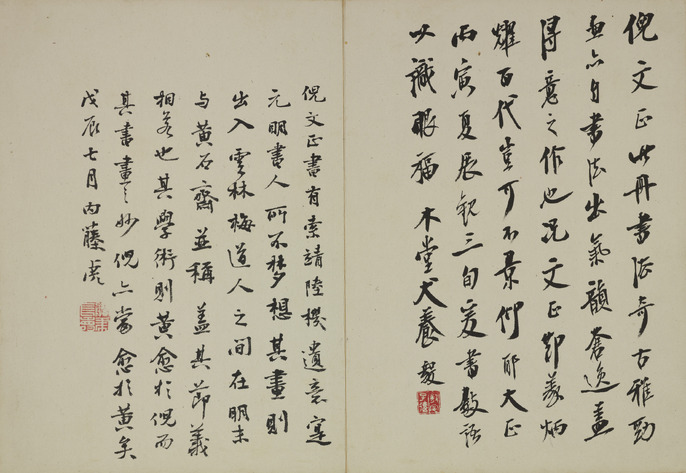 倪文正此冊書法奇古雅勁
畫亦自書法出氣韻蒼逸蓋
得意之作也況文正節義炳
耀百代豈可不景仰耶大正
丙寅夏展觀三旬爰書數語
以識眼福 木堂犬養毅
倪文正書有索靖陸機遺意寔
元明書人所不夢想其畫則
出入雲林梅道人之間在明末
與黃石齋並稱蓋其節義
相若也其學術則黃愈於倪而
其書畫之妙倪亦當愈於黃矣
戊辰七月內藤虎